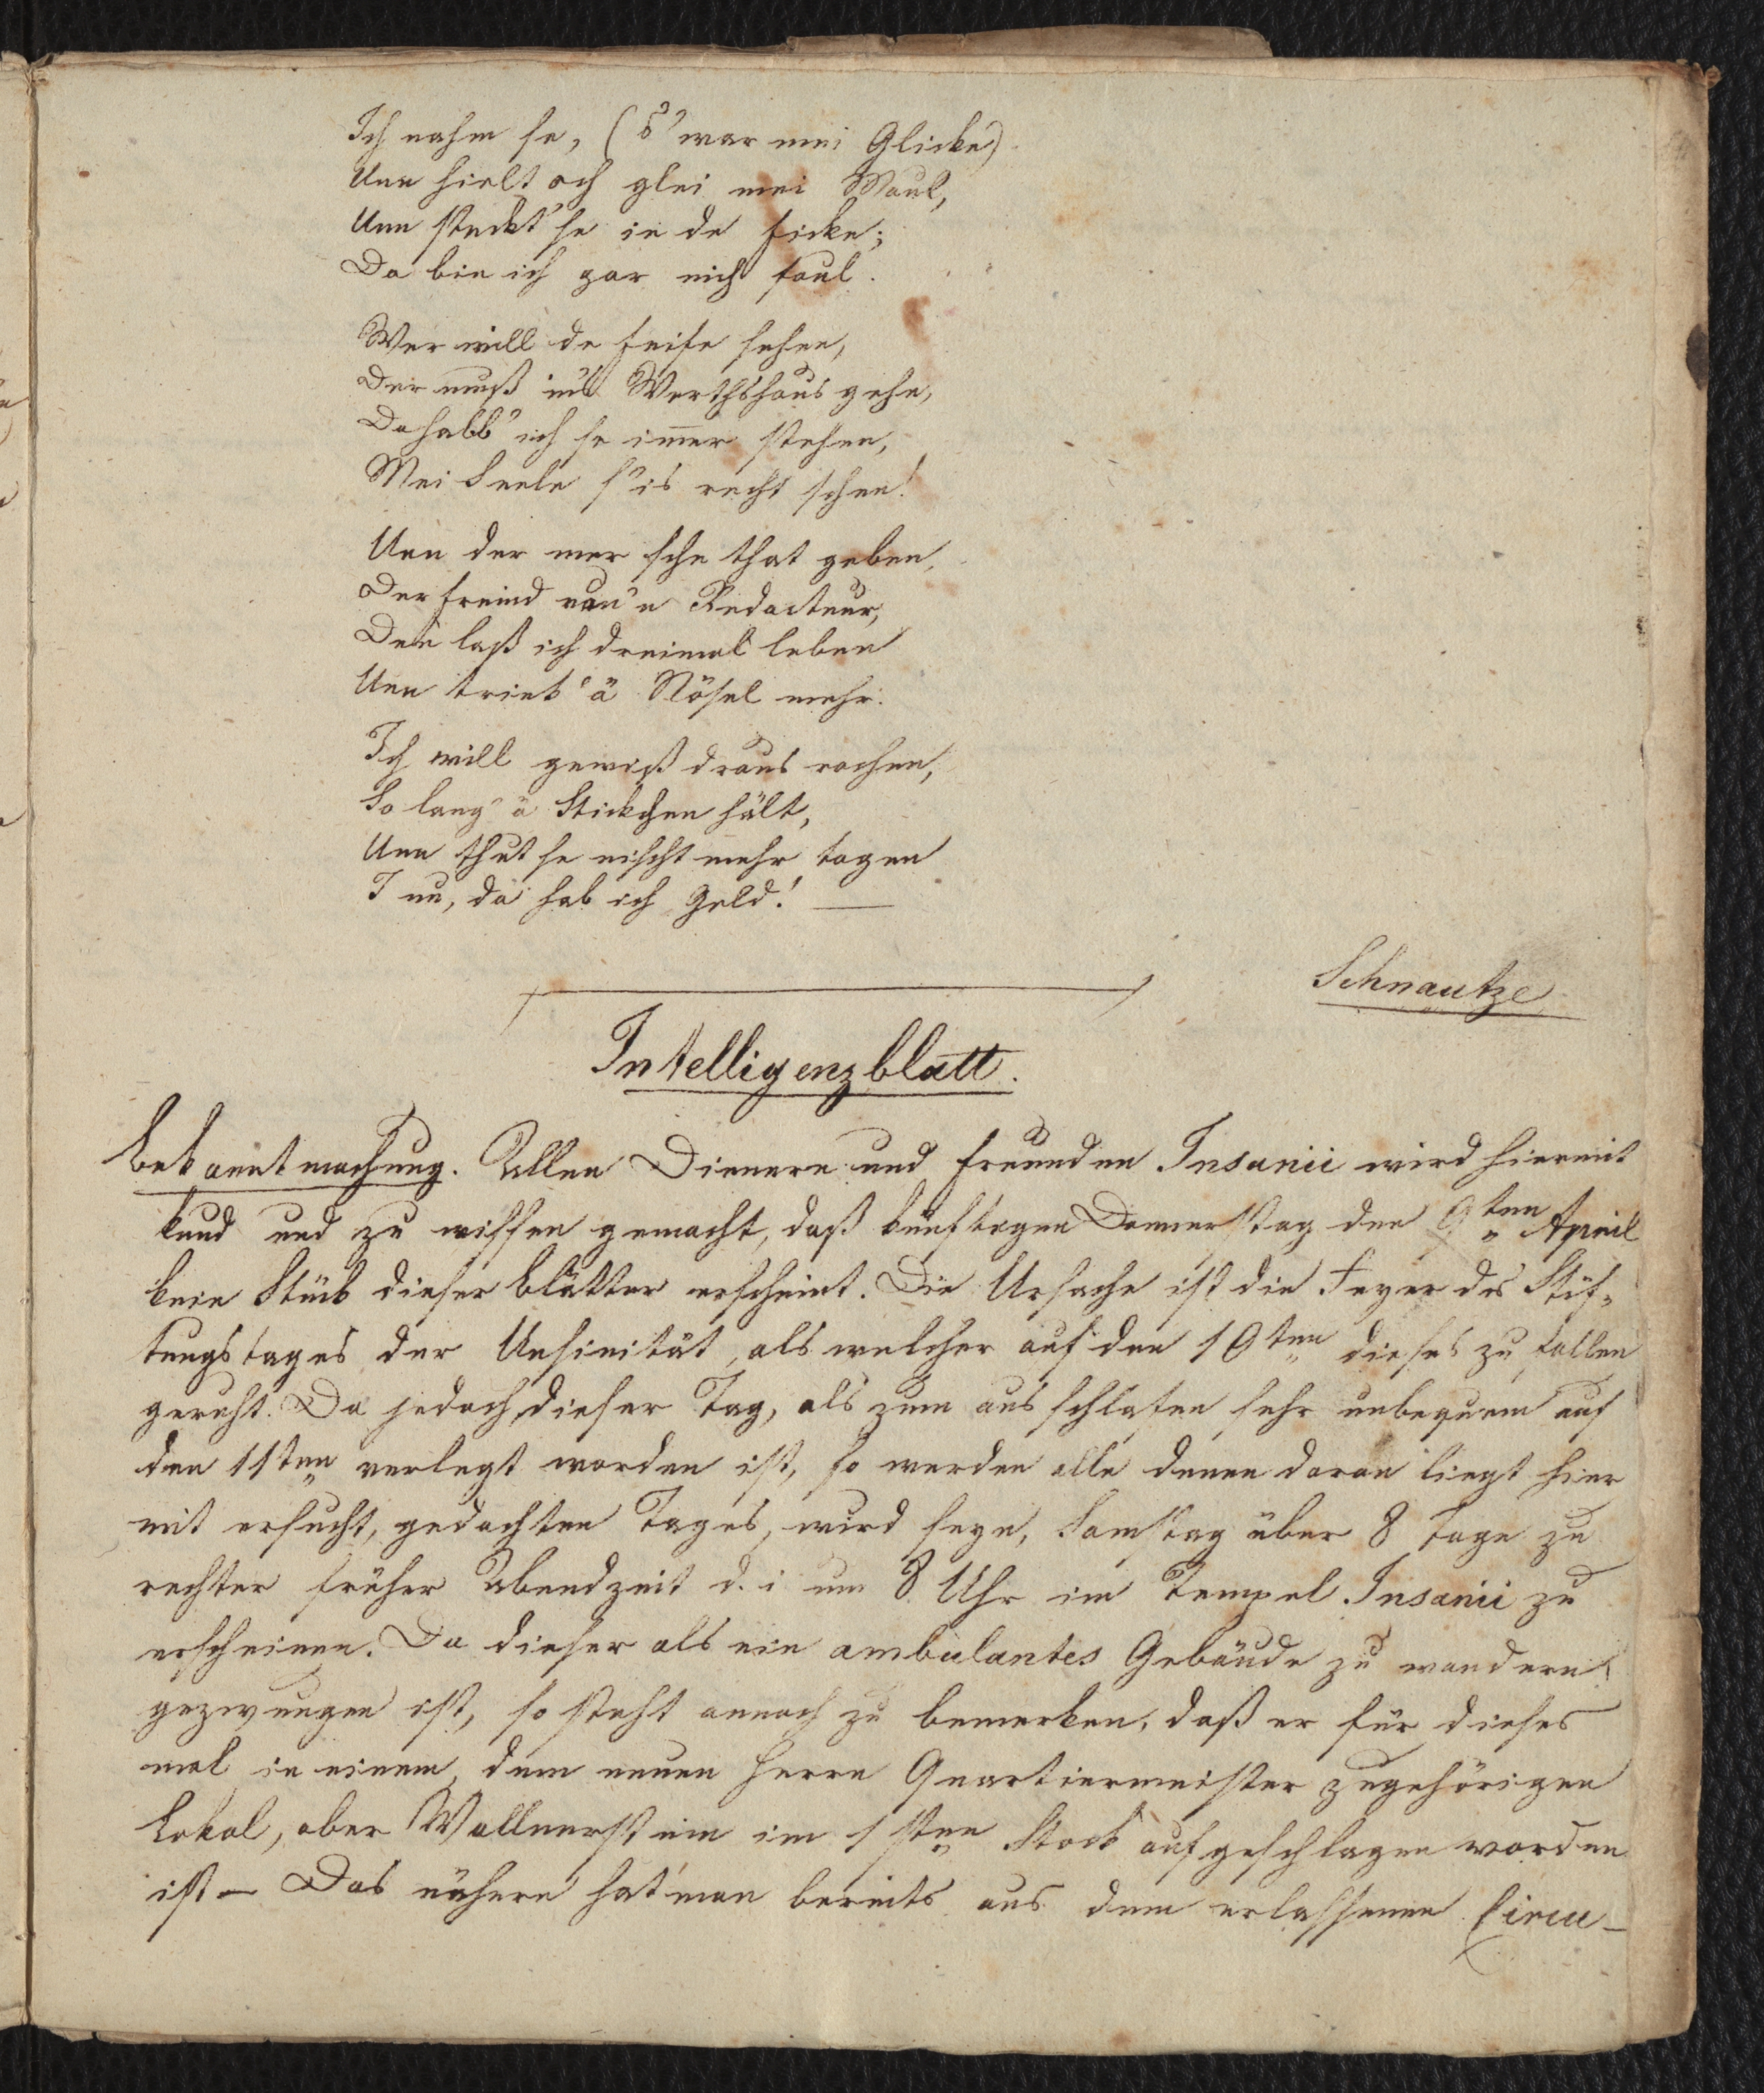 Ich nahm se, (s' war mei Glicke)
Unn hielt och glei mei Maul,
Unn steckt' se in de Ficke;
Da bin ich gar nich faul.
Wer will de Feife sehen,
Der muß ins Werthshaus gehn,
Da habb' ich se im̅er stehen,
Mei Seele s' is recht scheen!
Unn der mer sche that geben,
Der Freind von'n Redacteur,
Den laß ich dreimal leben
Unn trink' ä Nösel mehr.
Ich will gewiß draus rochen,
So lang' ä Stickchen hält,
Unn thut se nischt mehr togen
I nu, da hab ich Geld! —
Schnautze
Intelligenzblatt.
Bekanntmachung. Allen Dienern und Freunden Insanii wird hiermit
kund und zu wissen gemacht, daß künftigen Donnerstag den 9ten April
kein Stück dieser Blätter erscheint. Die Ursache ist die Feyer des Stif-
tungstages der Unsinität, als welcher auf den 10ten dieses zu fallen
geruht. Da jedoch dieser Tag, als zum ausschlafen sehr unbequem auf
den 11ten verlegt worden ist, so werden alle denen daran liegt hier
mit ersucht, gedachten Tages, wird seyn, Samstag über 8 Tage zu
rechter früher Abendzeit d. i. um 8 Uhr im Tempel Insanii zu
erscheinen. Da dieser als ein ambulantes Gebäude zu wandern
gezwungen ist, so steht annoch zu bemerken, daß er für dieses
mal in einem, dem neuen Herrn Quartiermeister zugehörigen
Lokal, ober Wallnerstein im 1sten Stock aufgeschlagen worden
ist — Das nähere hat man bereits aus dem erlassenen Circu-